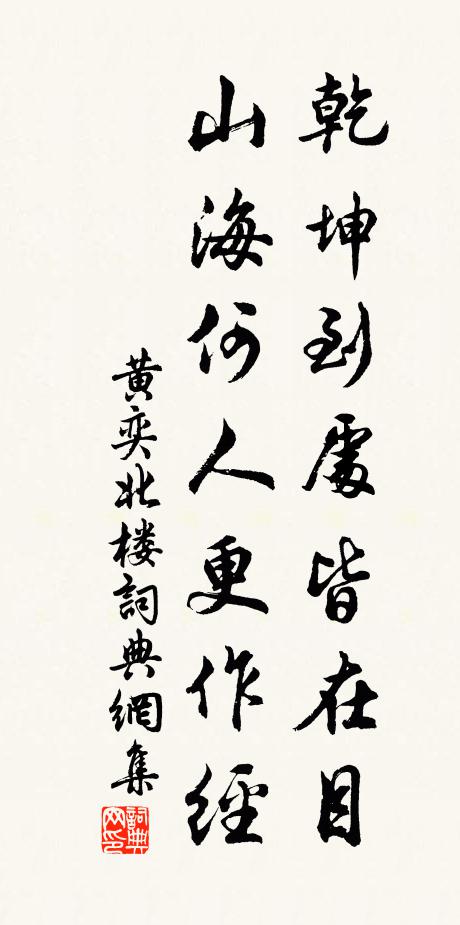 乾坤到處皆在目
山海何人更作經
黄奕北楼詞典網集
詞典网印